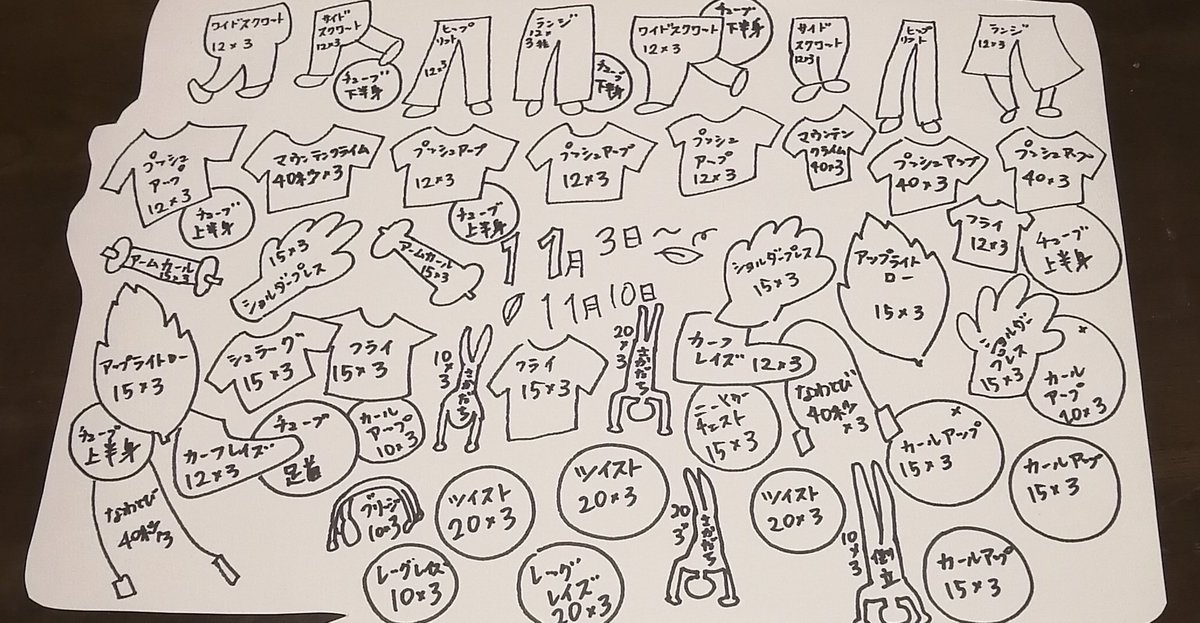 ワイドスクワート
12×3
サイド
スクワート
12×3
チューブ
下半身
ヒップ
リフト
12×3
ランジ
12×
3
チューブ
下半身
ワイドスクワート
12×3
チューブ
下半身
サイド
スクワート
12×3
ヒップ
リフト
12×3
ランジ
12×3
プッシュ
アップ
12×3
チューブ
上半身
マウンテンクライム
40ビョウ×3
プッシュアップ
12×3
チューブ
上半身
プッシュアップ
12×3
プッシュ
アップ
12×3
マウンテン
クライム
40×3
プッシュアップ
40×3
プッシュアップ
40×3
アームカール
15×3
15×3
ショルダープレス
アームカール
15×3
11月3日〜
11月10日
ショルダープレス
15×3
アップライト
ロー
15×3
フライ
12×3
チューブ
上半身
アップライトロー
15×3
シュラーグ
15×3
フライ
15×3
10×3
さかだち
フライ
15×3
20×3
さかだち
カーフ
レイズ 12×3
なわとび
40ビョウ
×3
ショルダー
プレス
15×3
カール
アップ
20×3
チューブ
上半身
カーフレイズ
12×3
チューブ
足首
カール
アップ
10×3
ニートゥ
チェスト
15×3
カールアップ
15×3
カールアップ
15×3
なわとび
40ビョウ×3
ブリージ
10×3
ツイスト
20×3
ツイスト
20×3
20×3
さかだち
ツイスト
20×3
10×3
倒立
カールアップ
15×3
レーグレイズ
10×3
レーグ
レイズ
20×3